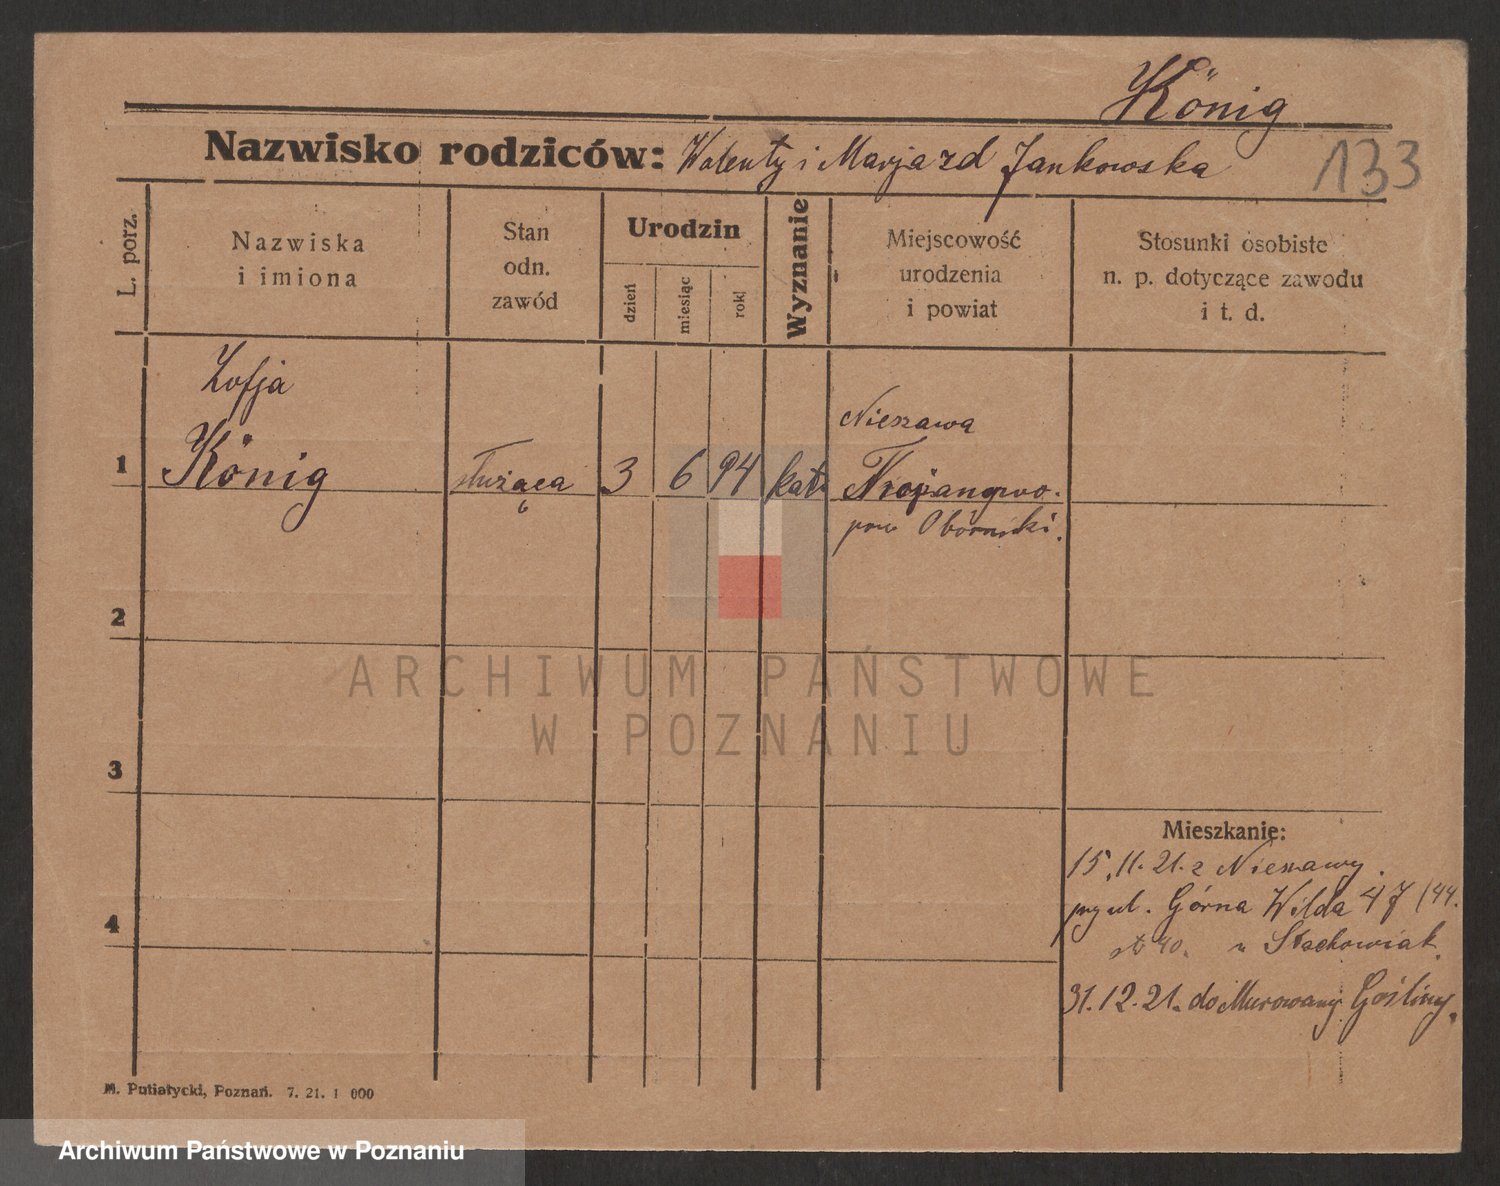 König
Nazwisko rodziców: Walenty i Marja zd Jankowska
133
L. porz.
Nazwiska
i imiona
Stan
odn.
zawód
Urodzin
dzień
miesiąc
rok
Wyznanie
Miejscowość
urodzenia
i powiat
Stosunki osobiste
n. p. dotyczące zawodu
i t. d.
Zofja
1 König
służąca
3 6 94 kat.
Nieszawa
pow Oborniki.
2
3
4
ARCHIWUM PAŃSTWOWE
W POZNANIU
Mieszkanie:
15.11.21. z Nieszawy.
przy ul. Górna Wilda 47 /44.
u Stachowiak.
31.12.21. do Murowany Gośliny.
M. Putiatycki, Poznań. 7. 21. 1 000
Archiwum Państwowe w Poznaniu